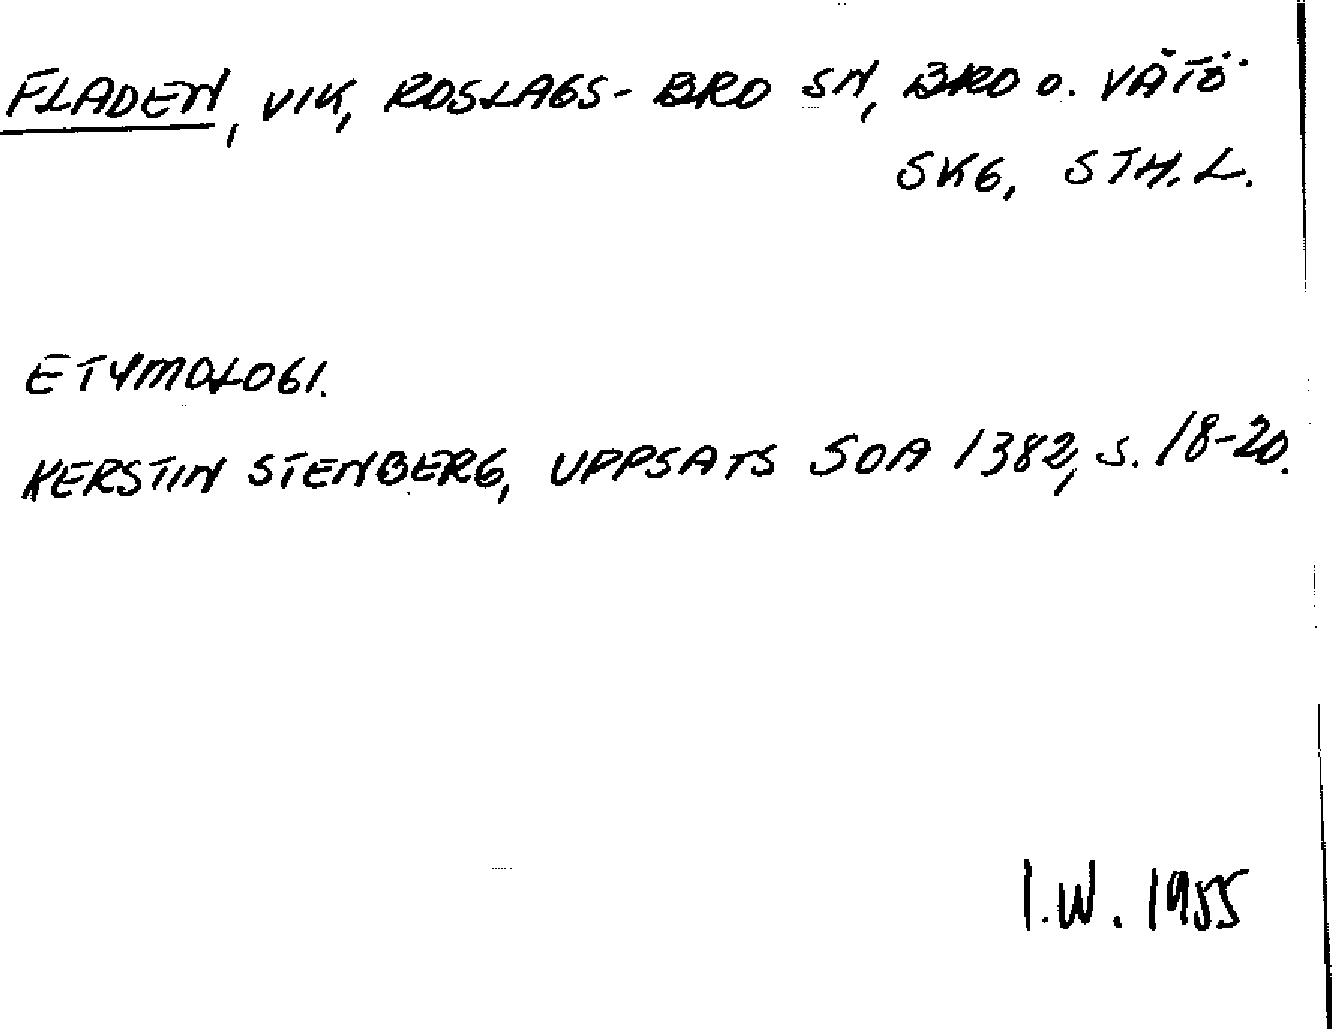 FLADEN, VIK, ROSLAGS-BRO SN, BRO o. VÄTÖ
SKG, STH.L.
ETYMOLOGI.
KERSTIN STENBERG, UPPSATS SOA 1382, S. 18-20.
I.W. 1955